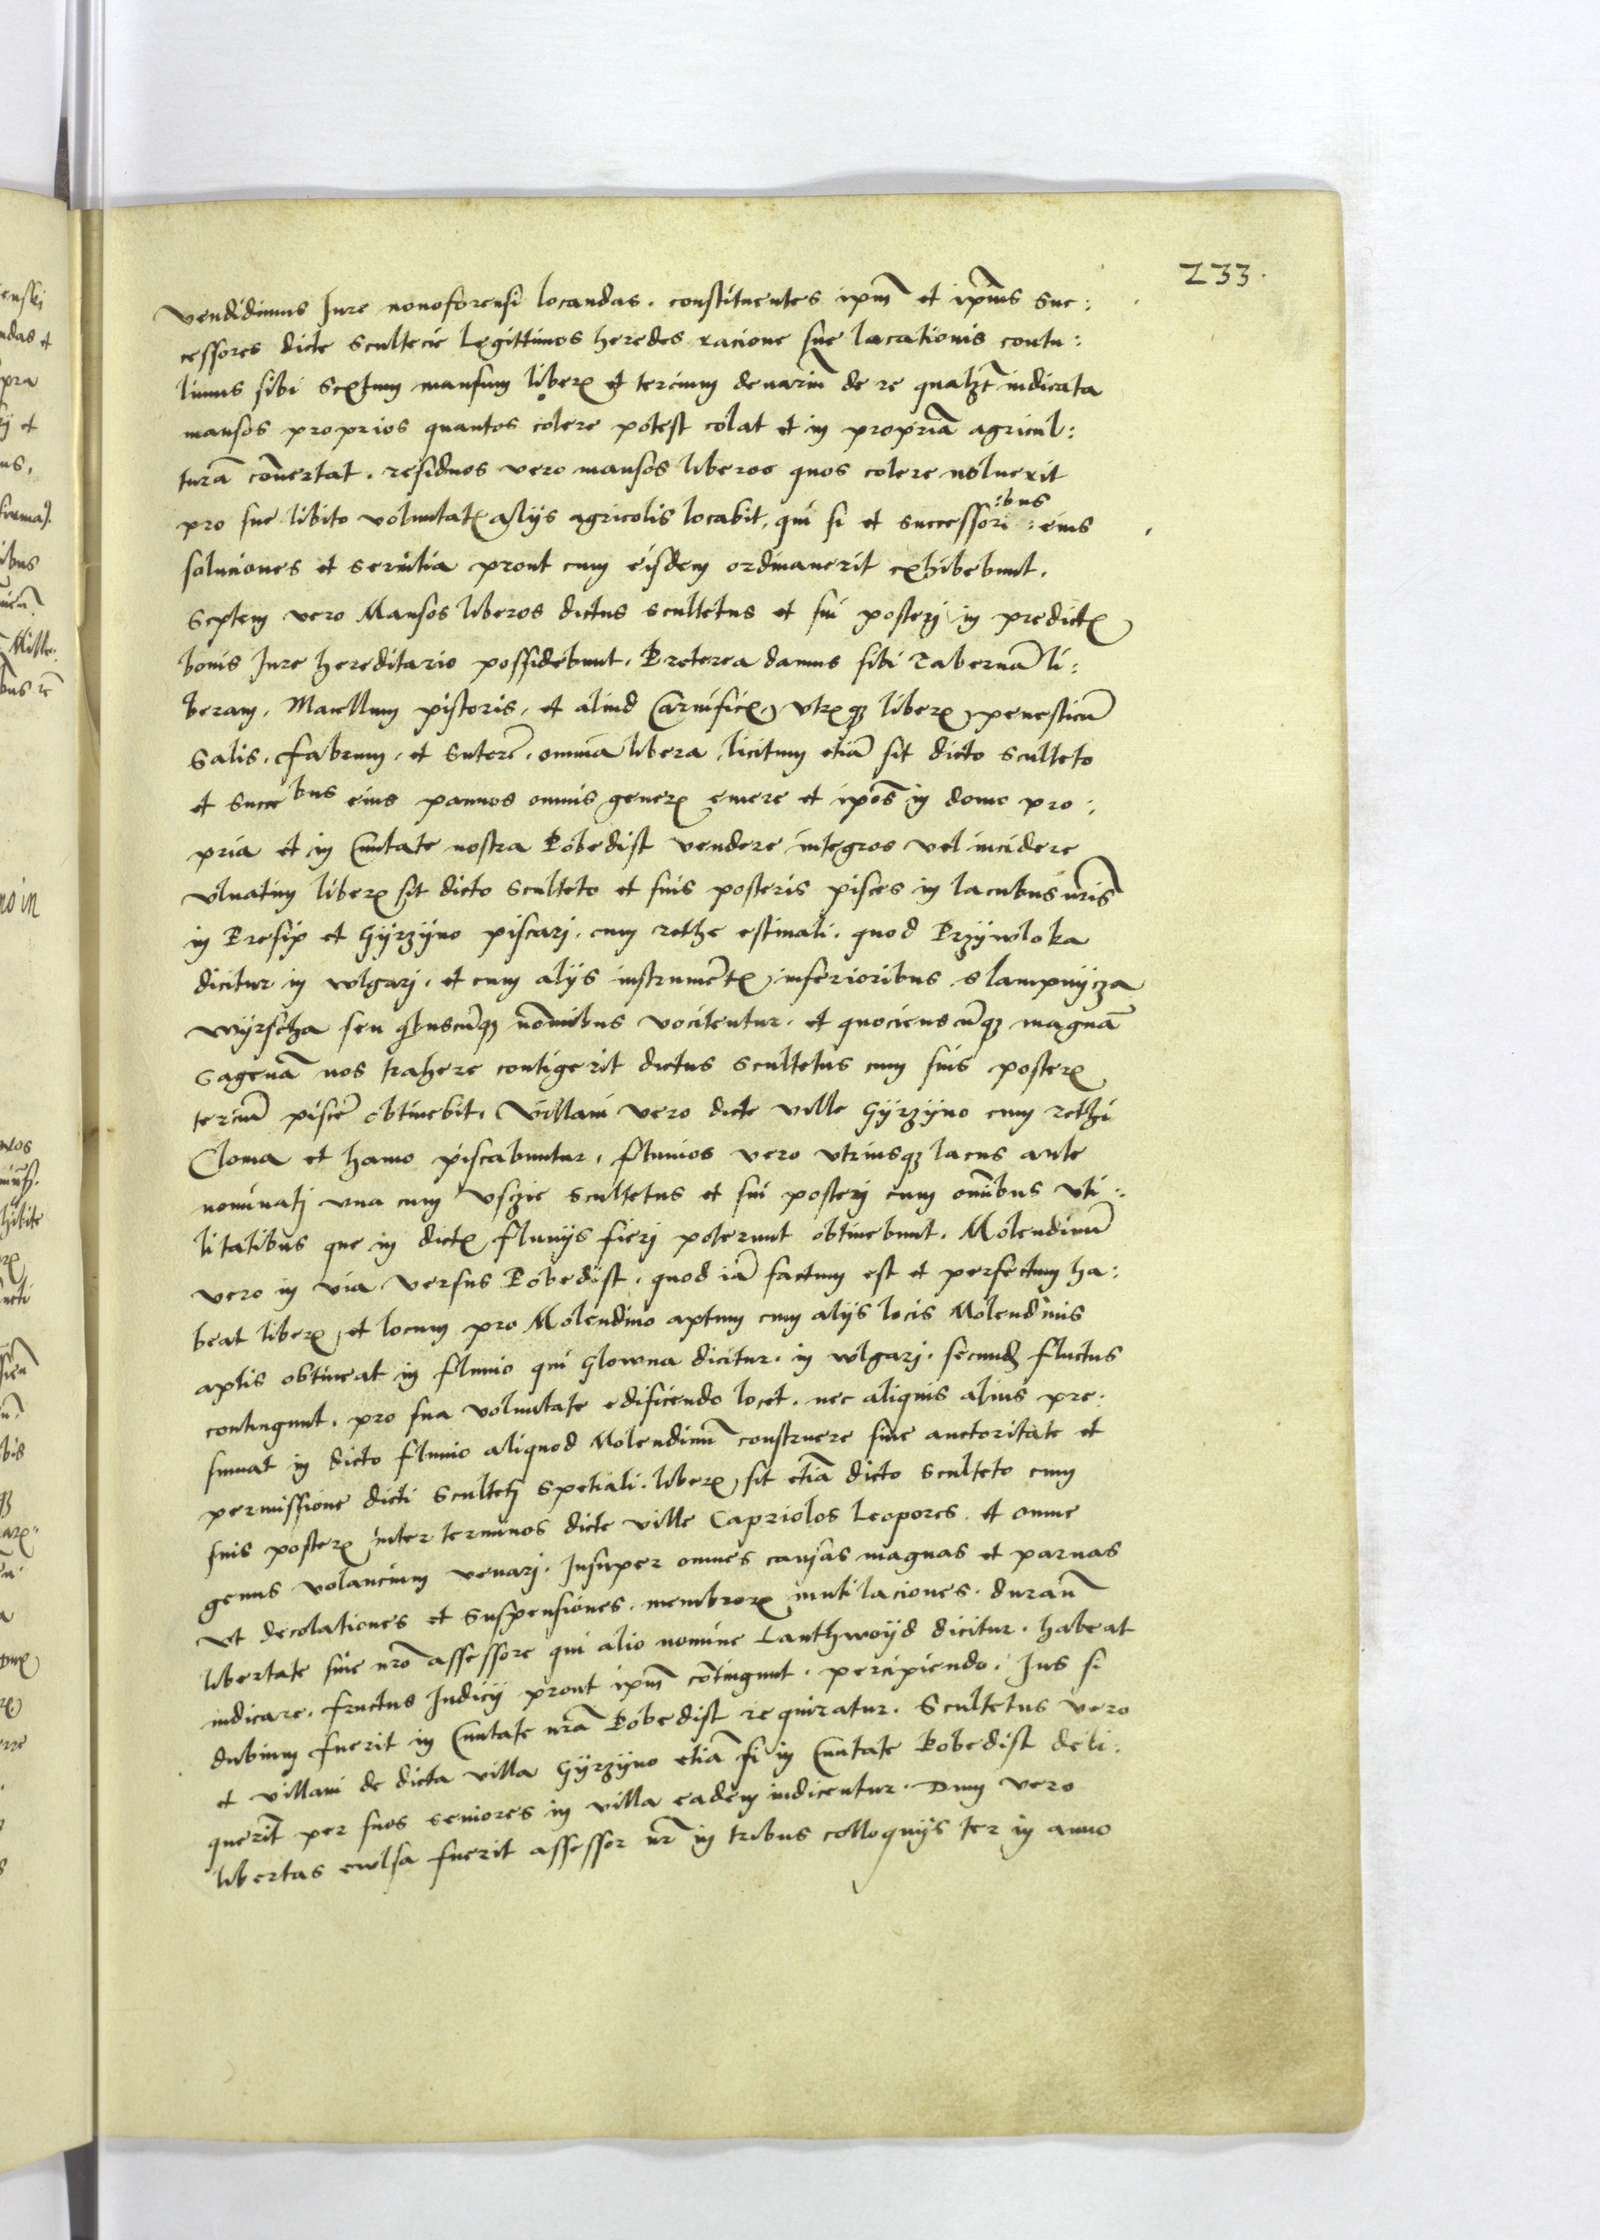 233.
vendidimus Jure novoforensi locandas. constituentes ipm̄ et ipīus suc:
cessores dicte scultecie legittimos heredes racione sue lacationis contu:
limus sibi sextum mansum liberꝝ et tercium denariū de re qualꝫt iudicata
mansos proprios quantos colere potest colat et in propriā agricul:
turā cōvertat. residuos vero mansos liberos quos colere noluerit
pro sue libito voluntatꝭ alijs agricolis locabit, qui si et successoribus eius
soluciones et servitia prout cum eisdem ordinaverit exhibebunt.
Septem vero Mansos liberos dictus scultetus et sui posterj in predictꝭ
bonis Jure hereditario possidebunt. Preterea damus sibi Tabernā li:
beram. Macellum pistoris, et aliud Carnificꝭ, vtrꝭqꝫ liberꝝ, penesticū
salis. fabrum. et sutorē. omnia libera. licitum etiā sit dicto sculteto
et succebus eius pannos omnis generꝭ emere et ipōs in domo pro:
pria et in Civitate nostra Pobedist vendere integros vel incidere
vlnatim liberꝝ sit dicto sculteto et suis posteris pisces in lacubus nr̄is
in Presip et Gÿrzÿno piscarj. cum rethe estivali. quod Przÿwloka
dicitur in wlgarj. et cum alijs instrumētꝭ inferioribus slampnÿcza
wÿrscha seu qͥbuscūqꝫ nōminibus vocitentur. et quocienscūqꝫ magnā
sagenā nos trahere contigerit dictus scultetus cum suis posterꝭ
terciū piscē obtinebit. Villani vero dicte ville Gÿrzÿno cum rethi
Cloma et hamo piscabuntur. fluvios vero vtriusqꝫ lacus ante
nominatj vna cum Vsczie scultetus et sui posterj cum omībus vti:
litatibus que in dictꝭ fluvijs fierj poterunt obtinebunt. Molendinū
vero in via versus Pobedist. quod iā factum est et perfectum ha:
beat liberꝝ, et locum pro Molendino aptum cum alijs locis Molendinis
aptis obtineat in fluvio qui Glowna dicitur. in wlgarj. secundꝫ fluctus
contingunt. pro sua voluntate edificendo locet. nec aliquis alius pre:
sumat in dicto fluvio aliquod Molendinū construere sine auctoritate et
permissione dicti scultetj spetiali. liberꝝ, sit etiā dicto sculteto cum
suis posterꝭ inter terminos dicte ville Capriolos Leopores. et omne
genus volancium venarj. Insuper omnes causas magnas et parvas
vt decolationes et suspensiones. membrorꝝ mutilaciones. durantē
libertate sine nr̄o assessore qui alio nomine Lanthwoÿd dicitur. habeat
iudicare. fructus Judicij prout ipm̄ cōtingunt. percipiendo. Jus si
dubium fuerit in Civitate nr̄a Pobedist requiratur. Scultetus vero
et villani de dicta villa Gÿrzÿno etiā si in Civitate Pobedist deli:
querīt per suos seniores in villa eadem iudicentur. Dum vero
libertas evulsa fuerit assessor nr̄ in tribus colloquijs ter in anno